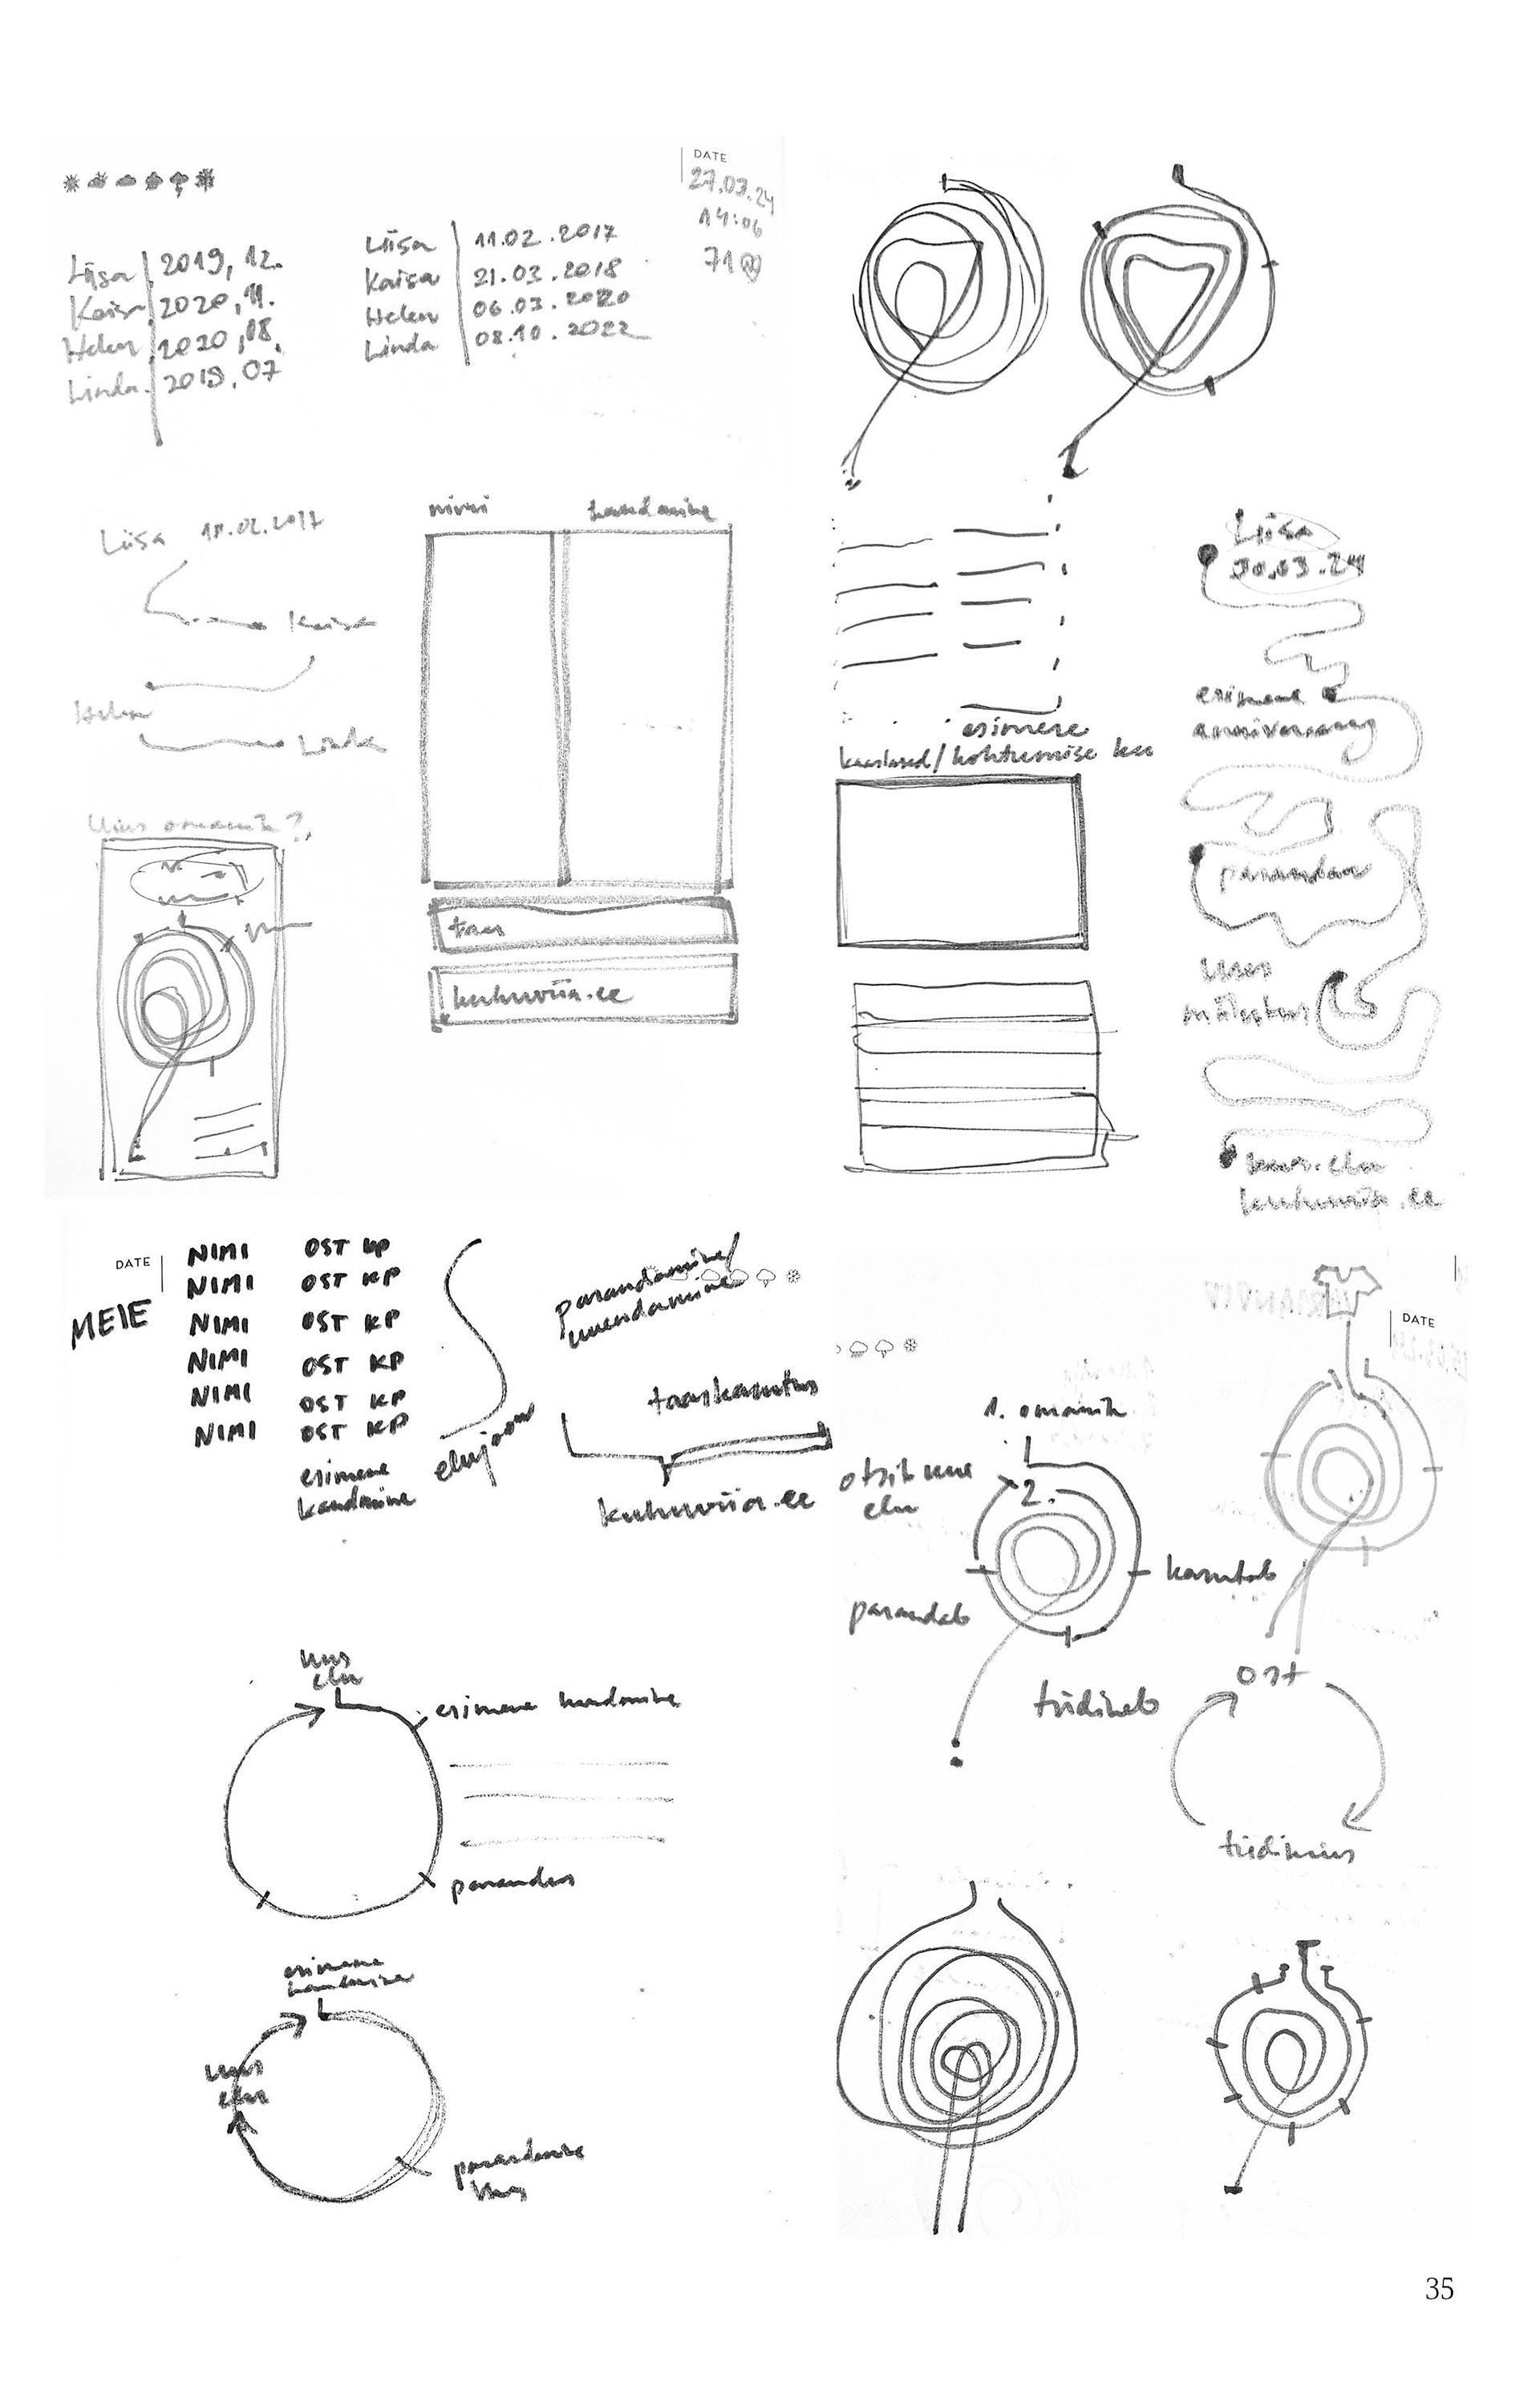 DATE
27.03.24
14:06
Liisa 2019, 12.
Kaisa 2020, 11.
Helen 2020, 08.
Linda 2019, 07
Liisa 11.02.2017
Kaisa 21.03.2018
Helen 06.03.2020
Linda 08.10.2022
Liisa 11.02.2017
Kaisa
Helen
Linda
nimi kandmine
kuhuviia.ee
Uus omanik?
esimene
kaaslased/kohtumise kuu
Liisa
30.03.24
esimene
anniversary
parandan
uus
mälestus
uus elu
kuhuviia.ee
DATE
MEIE
NIMI OST KP
NIMI OST KP
NIMI OST KP
NIMI OST KP
NIMI OST KP
NIMI OST KP
esimene
kandmine
elujoon
parandamine/
uuendamine
taaskasutus
kuhuviia.ee
DATE
1. omanik
otsib uue
elu
2.
kasutab
parandab
tüdineb
ost
tüdimus
uus
elu
esimene kandmine
parandus
esimene
kandmine
uus
elu
parandamine
35